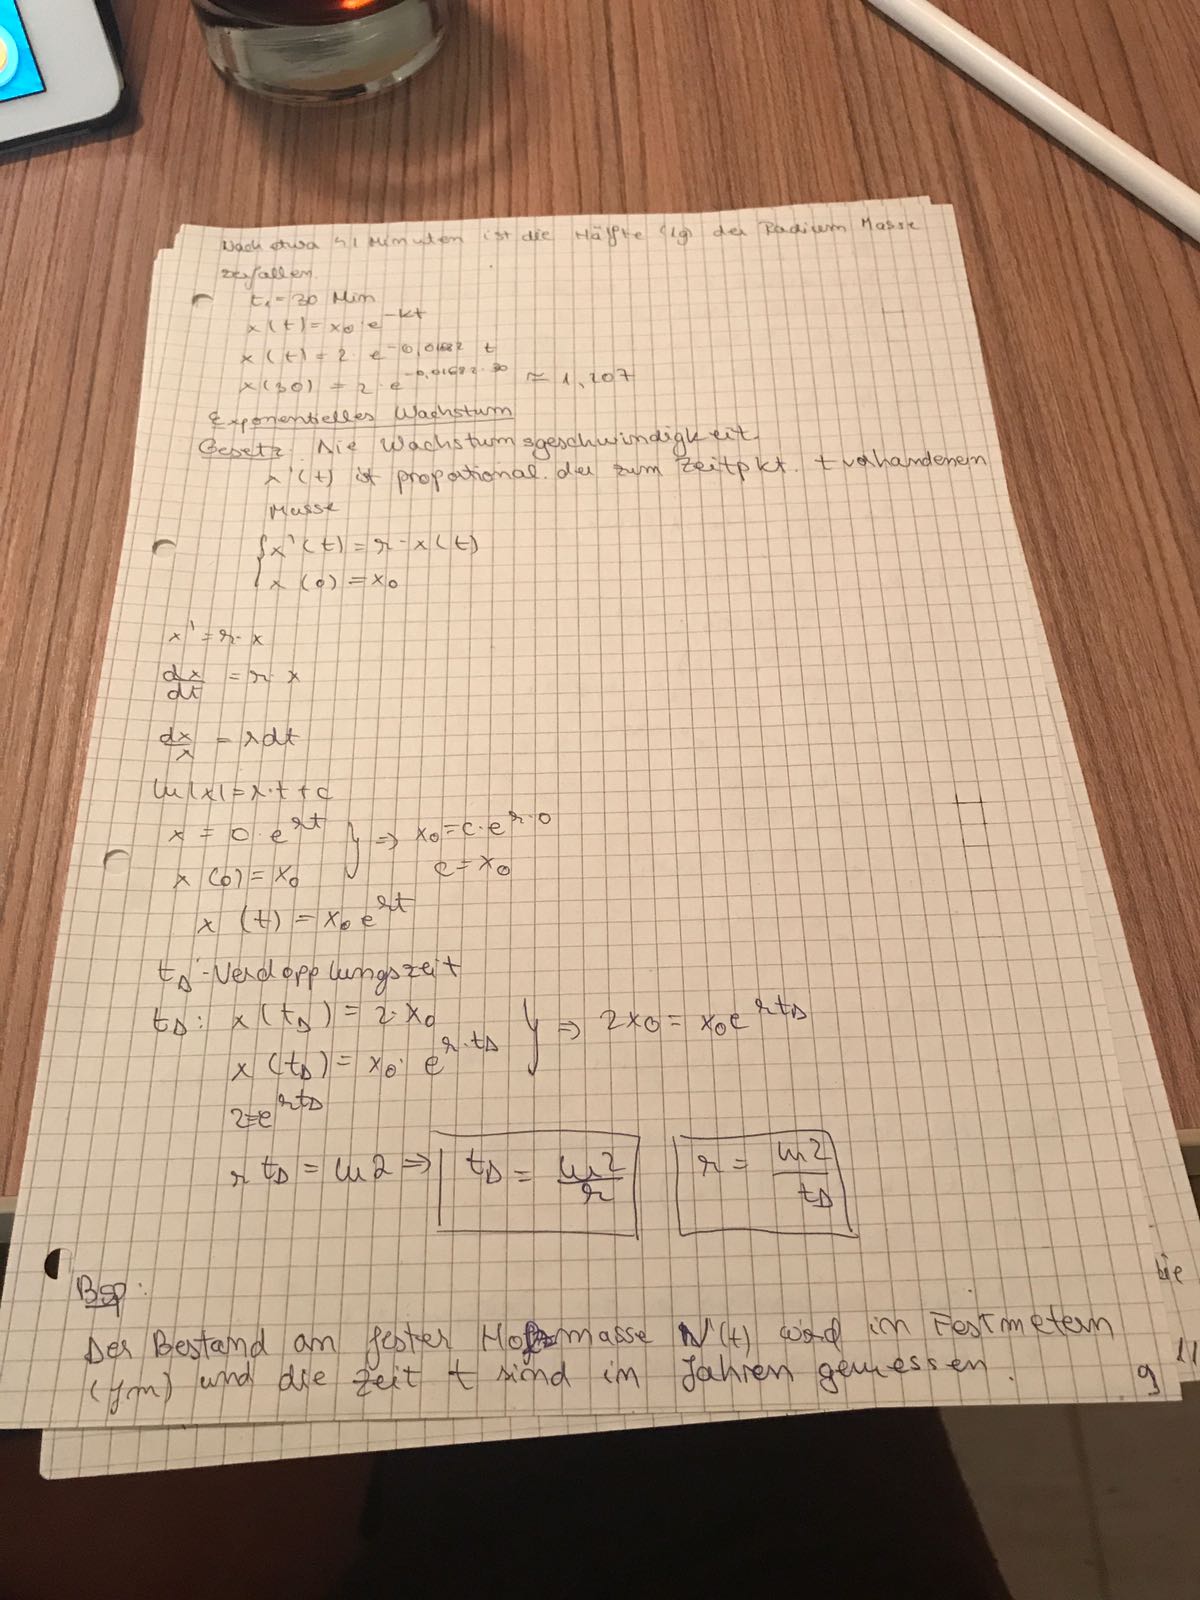 Nach etwa 41 Minuten ist die Hälfte (1g) der Radium Masse
zerfallen.
t₁ = 30 Min
x(t) = x₀ · e^(-kt)
x(t) = 2 · e^(-0,01682 t)
x(30) = 2 · e^(-0,01682·30) ≈ 1,207
Exponentielles Wachstum
Gesetz: Die Wachstumsgeschwindigkeit
x'(t) ist proportional der zum Zeitpkt. t vorhandenen
Masse
{ x'(t) = r · x(t)
x(0) = x₀
x' = r · x
dx/dt = r · x
dx/x = r dt
ln|x| = r · t + c
x = C · e^(rt) } ⇒ x₀ = c · e^(r·0)
x(0) = x₀ c = x₀
x(t) = x₀ e^(rt)
t_D - Verdopplungszeit
t_D: x(t_D) = 2 · x₀ } ⇒ 2x₀ = x₀ e^(r t_D)
x(t_D) = x₀ · e^(r·t_D)
2 = e^(r t_D)
r t_D = ln 2 ⇒ t_D = ln 2/r r = ln 2/t_D
Bsp:
Der Bestand an fester Holzmasse N(t) wird in Festmetern
(fm) und die Zeit t sind in Jahren gemessen.
9
11